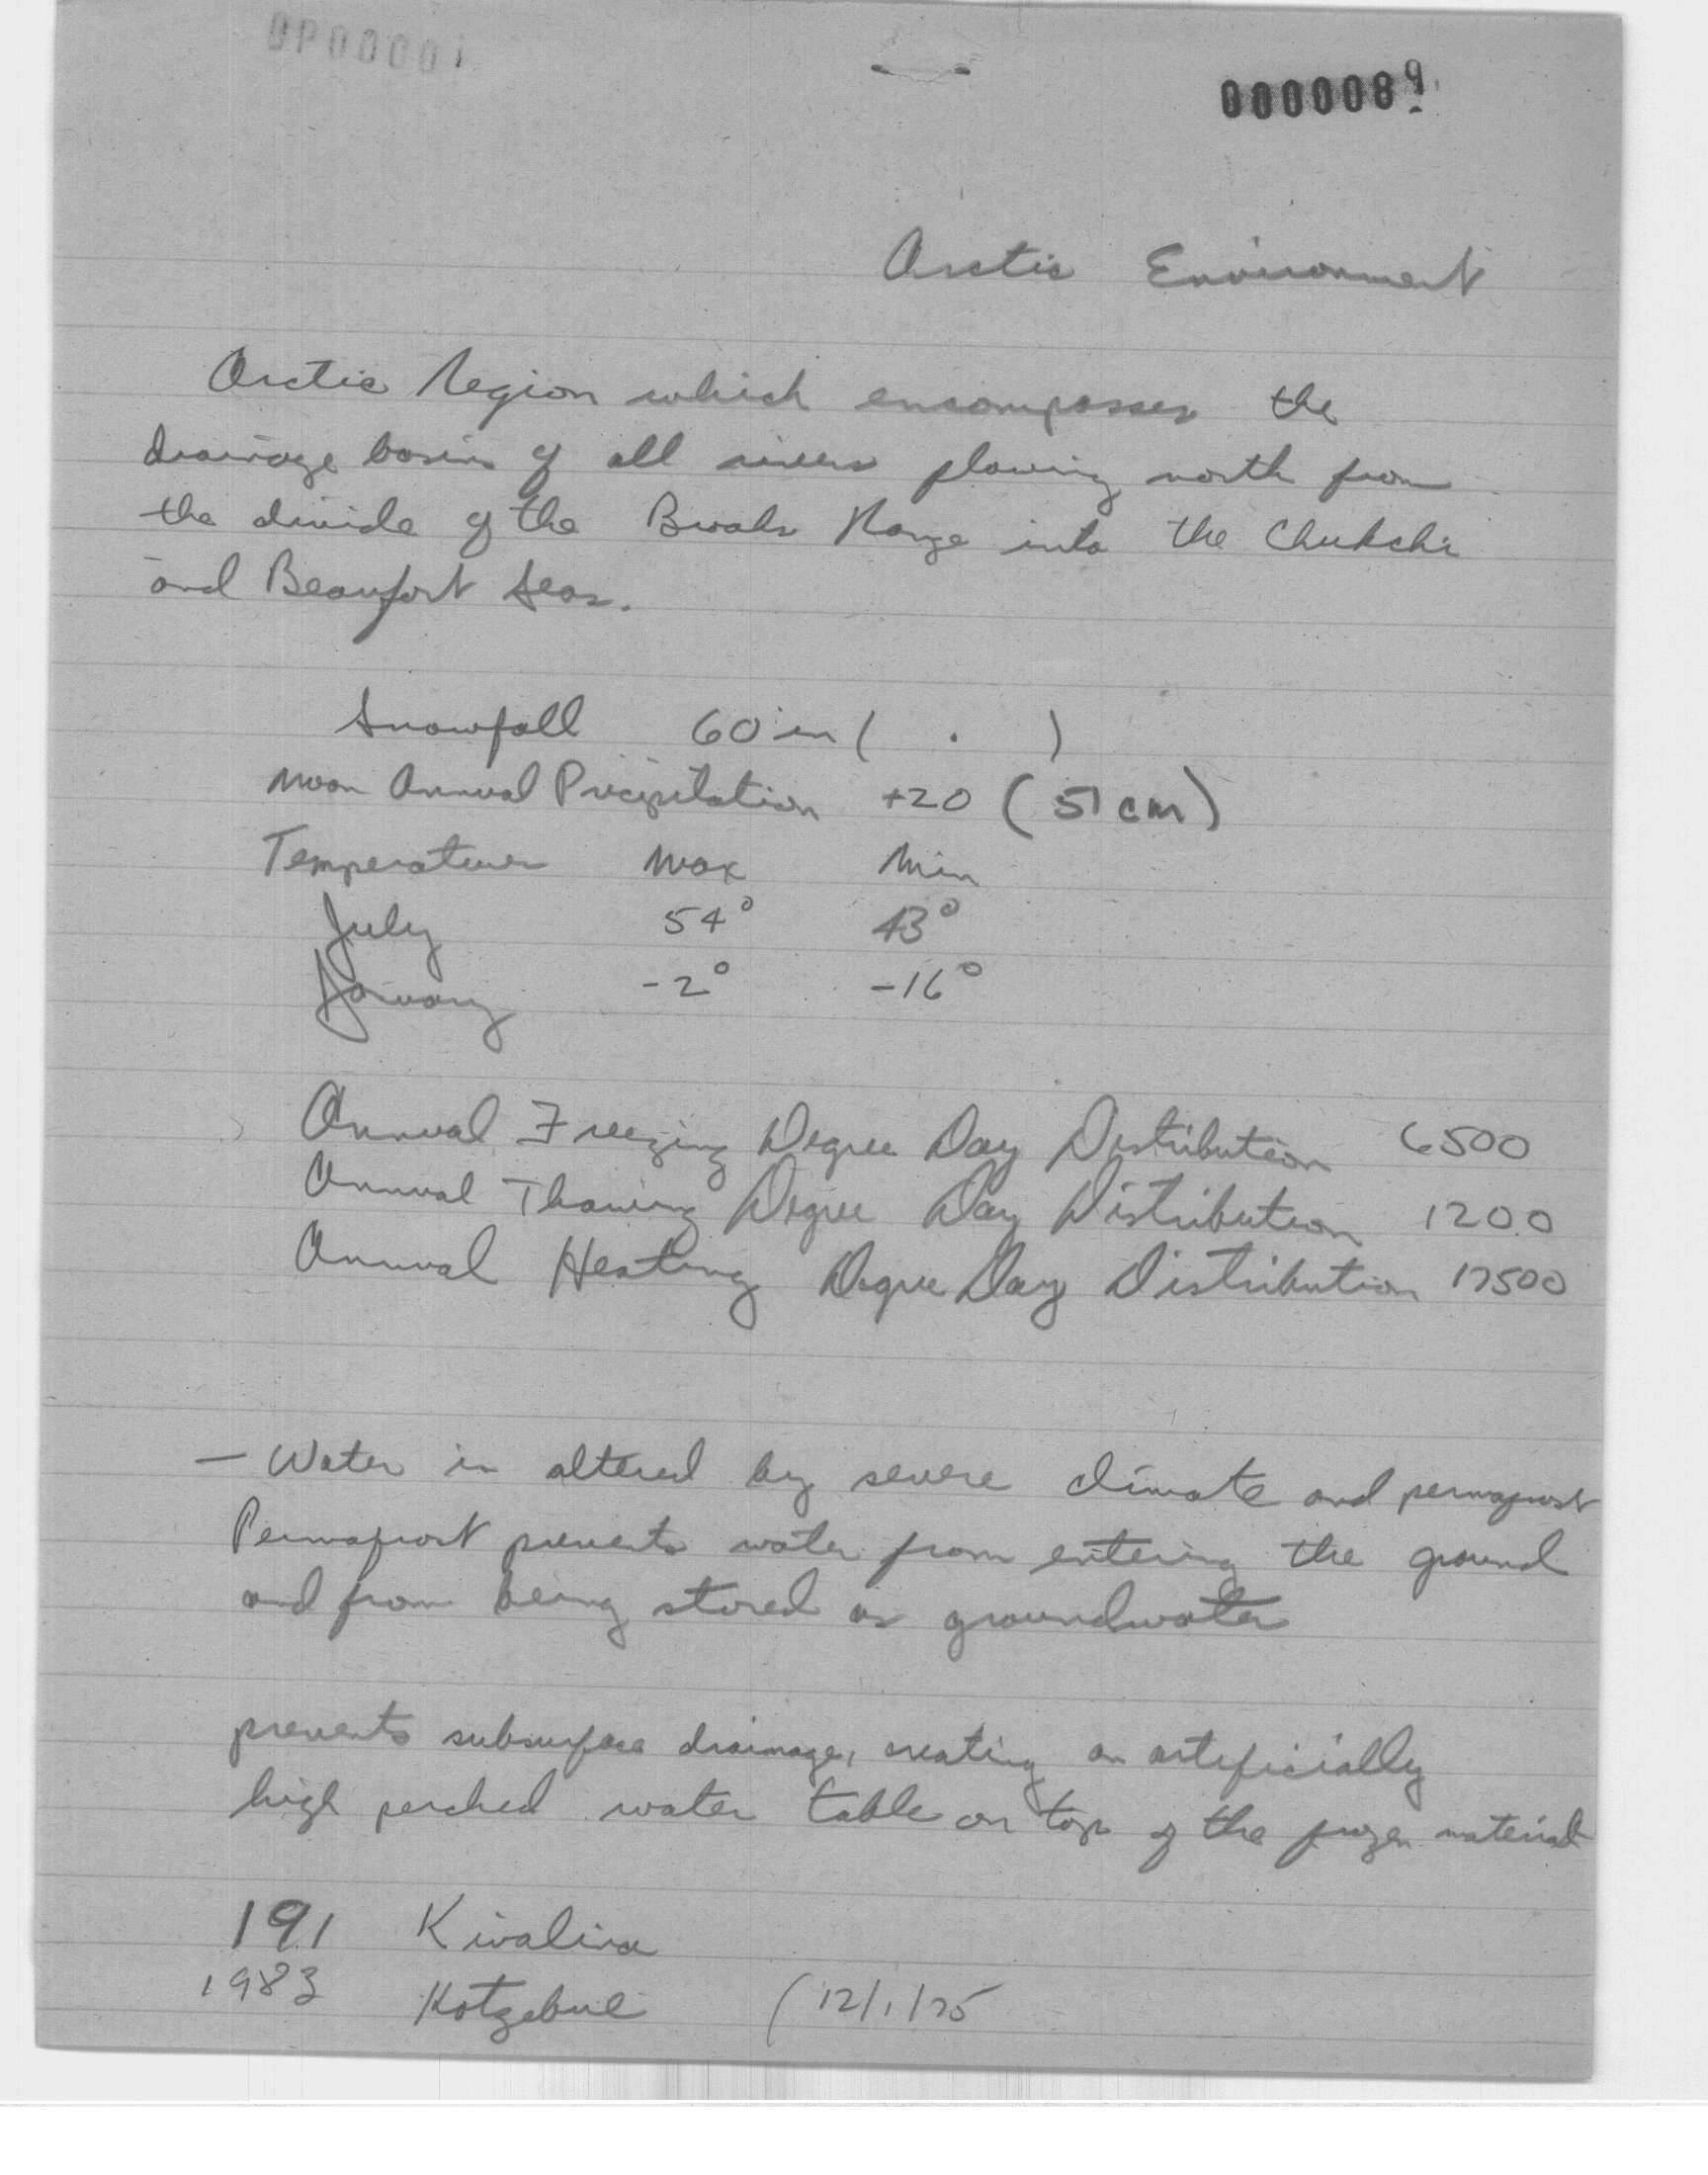 OP00001
0000089
Arctic Environment
Arctic Region which encompasses the
drainage basins of all rivers flowing north from
the divide of the Brooks Range into the Chukchi
and Beaufort Seas.
Snowfall 60 in ( . )
Mean Annual Precipitation +20 (51 cm)
Temperatures Max Min
July 54° 43°
January -2° -16°
Annual Freezing Degree Day Distribution 6500
Annual Thawing Degree Day Distribution 1200
Annual Heating Degree Day Distribution 17500
— Water is altered by severe climate and permafrost
Permafrost prevents water from entering the ground
and from being stored as groundwater
prevents subsurface drainage, creating an artificially
high perched water table on top of the frozen material
191 Kivalina
1983 Kotzebue (12/1/75